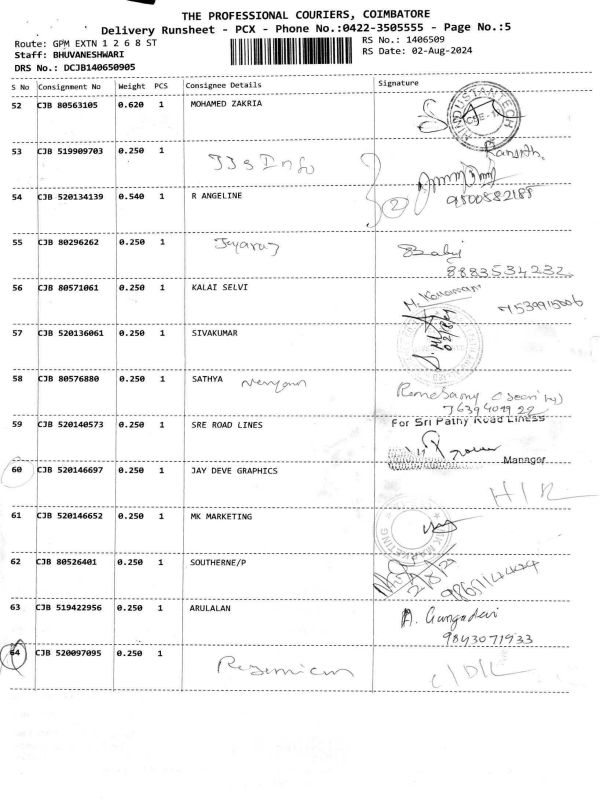 THE PROFESSIONAL COURIERS, COIMBATORE
Delivery Runsheet - PCX - Phone No.:0422-3505555 - Page No.:5
Route: GPM EXTN 1 2 6 8 ST
RS No.: 1406509
Staff: BHUVANESHWARI
RS Date: 02-Aug-2024
DRS No.: DCJB140650905
S No Consignment No Weight PCS Consignee Details Signature
52 CJB 80563105 0.620 1 MOHAMED ZAKRIA
53 CJB 519909703 0.250 1 JJs Info Ranjith.
54 CJB 520134139 0.540 1 R ANGELINE 2 9500582188
55 CJB 80296262 0.250 1 Jeyaraj Babj
8883534232
56 CJB 80571061 0.250 1 KALAI SELVI 7539915006
57 CJB 520136061 0.250 1 SIVAKUMAR
58 CJB 80576880 0.250 1 SATHYA
7639404922
59 CJB 520140573 0.250 1 SRE ROAD LINES For Sri Pathy Road Liness
Manager
60 CJB 520146697 0.250 1 JAY DEVE GRAPHICS
61 CJB 520146652 0.250 1 MK MARKETING MK MARKETING
62 CJB 80526401 0.250 1 SOUTHERNE/P 2/8/24
63 CJB 519422956 0.250 1 ARULALAN A. Gungadevi
9843071933
64 CJB 520097095 0.250 1